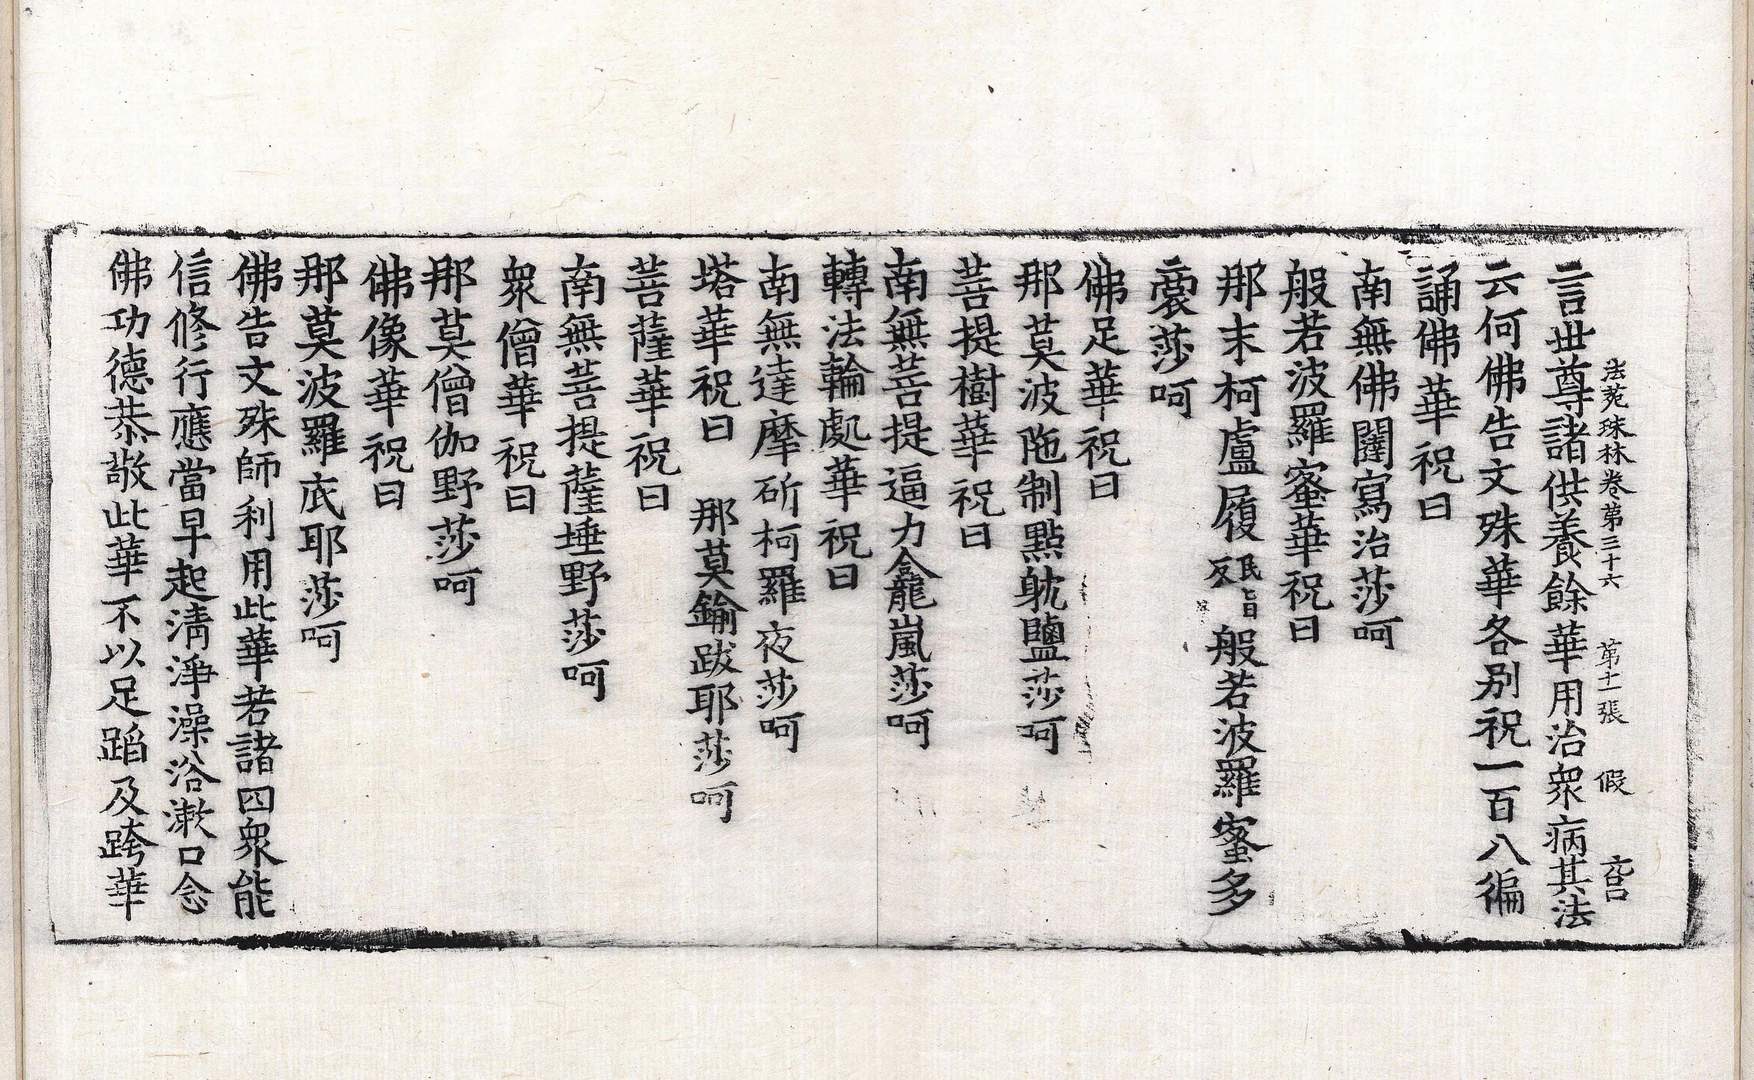 法苑珠林卷第三十六　第十一張　假
言世尊諸供養餘華用治衆病其法
云何佛告文殊華各別祝一百八徧
誦佛華祝曰
南無佛闥寫治莎呵
般若波羅蜜華祝曰
那末柯盧履民旨反般若波羅蜜多
裔莎呵
佛足華祝曰
那莫波陁制點躭鹽莎呵
菩提樹華祝曰
南無菩提逼力龕嵐莎呵
轉法輪處華祝曰
南無達摩斫柯羅夜莎呵
塔華祝曰　那莫鍮跋耶莎呵
菩薩華祝曰
南無菩提薩埵野莎呵
衆僧華祝曰
那莫僧伽野莎呵
佛像華祝曰
那莫波羅底耶莎呵
佛告文殊師利用此華若諸四衆能
信修行應當早起淸淨澡浴漱口念
佛功德恭敬此華不以足蹈及跨華